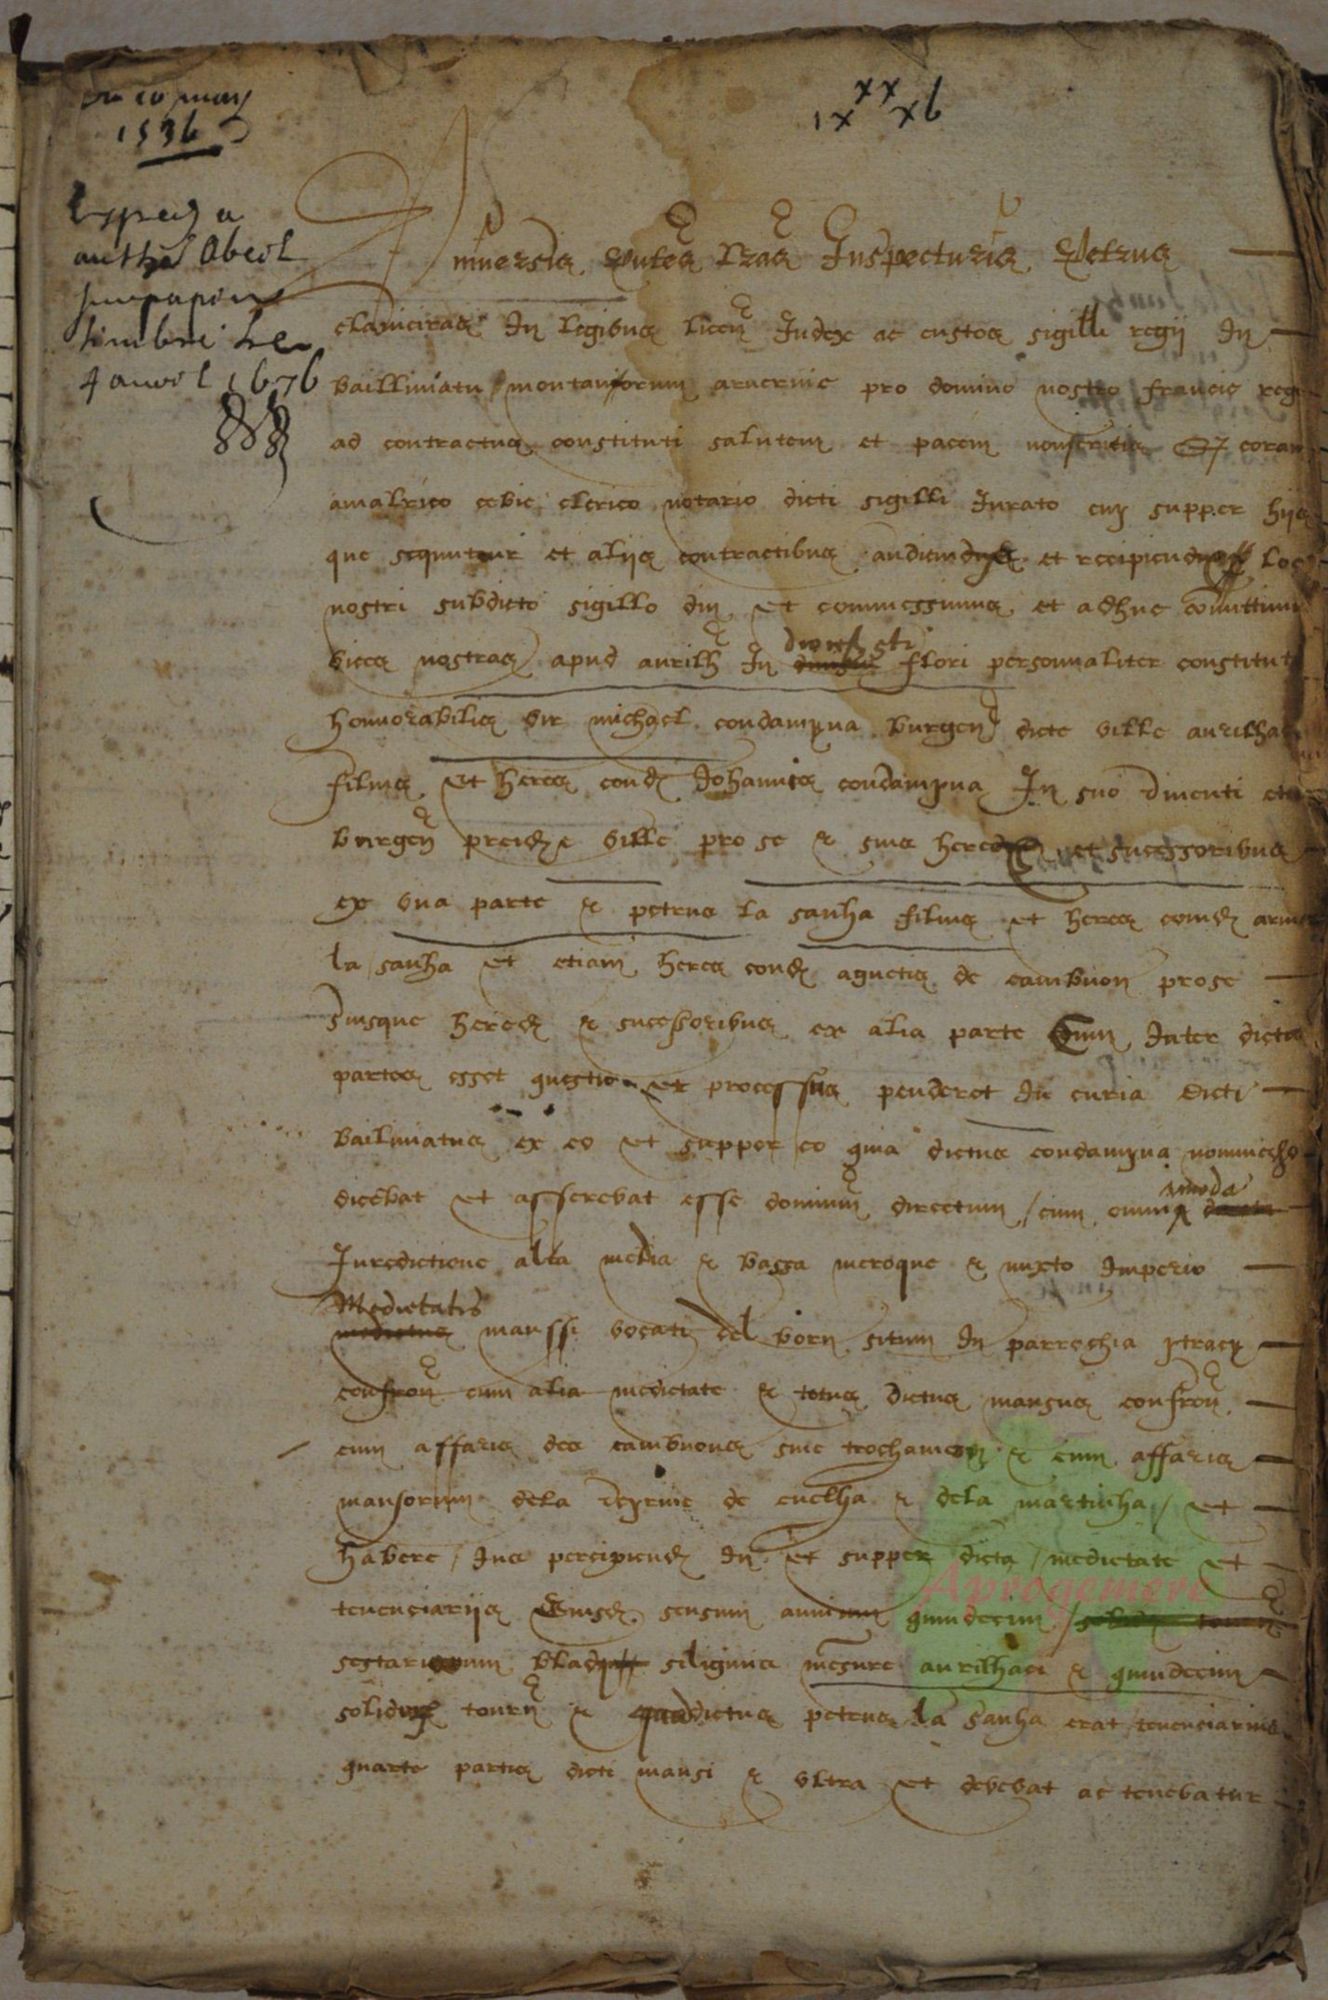 du 10 may
1536
ix xx xvi
Expedié a
Abeil
sur papier
timbré le
4 avril 1676
Universis p͞ntes l͞ras Inspecturis Petrus
clavieras In legibus licen͞ Judex ac custos sigilli regii In
bailliviatu montanorum arvernie pro domino nostro francie rege
ad contractus constituti salutem et pacem coram
amalrico clerico notario dicti sigilli Jurato cuy supper hiis
que sequntur et aliis contractibus audiendis et recipiendis loco
nostri subdicto sigillo diu et commissimus et adhuc comittimus
vices nostras apud aurilh͞ In dioces͞ sti flori personnaliter constitutis
honnorabilis vir michael condampna burgen͞ dicte ville aurilhaci
filius et heres cond͞ Johannis condampna In suo viventi etiam
burgen͞ predicte ville pro se & suis hered͞ et successoribus
ex una parte & petrus la sanha filius et heres cond͞
la sanha et etiam heres cond͞ agnetis de cambnon pro se
suisque hered͞ & sucessoribus ex alia parte Cum Inter dictas
partes esset questio et processus penderet In curia dicti
bailiviatus ex eo et supper eo quia dictus condampna
dicebat et asserebat esse dominum directum cum omnimoda
Jurdictione alta media & bassa meroque & mixto Imperio
Medietatis mansi vocati del born situm In parrochia ytracy
confron͞ cum alia medietate & totus dictus mansus confron͞
cum affariis des cambnons sive & cum affariis
mansorum de la de & de la martinha et
habere Jus percipiend͞ In et supper dicta medietate et
tenenciariis Eiusd͞ sensum quindecim
sestariorum bladi siliginis mesure aurilhaci & quindecim
solidos tourn͞ & quod dictus petrus la sanha erat tenenciarius
quarte partis dicti mansi & ultra et debebat ac tenebatur
Aprogemere